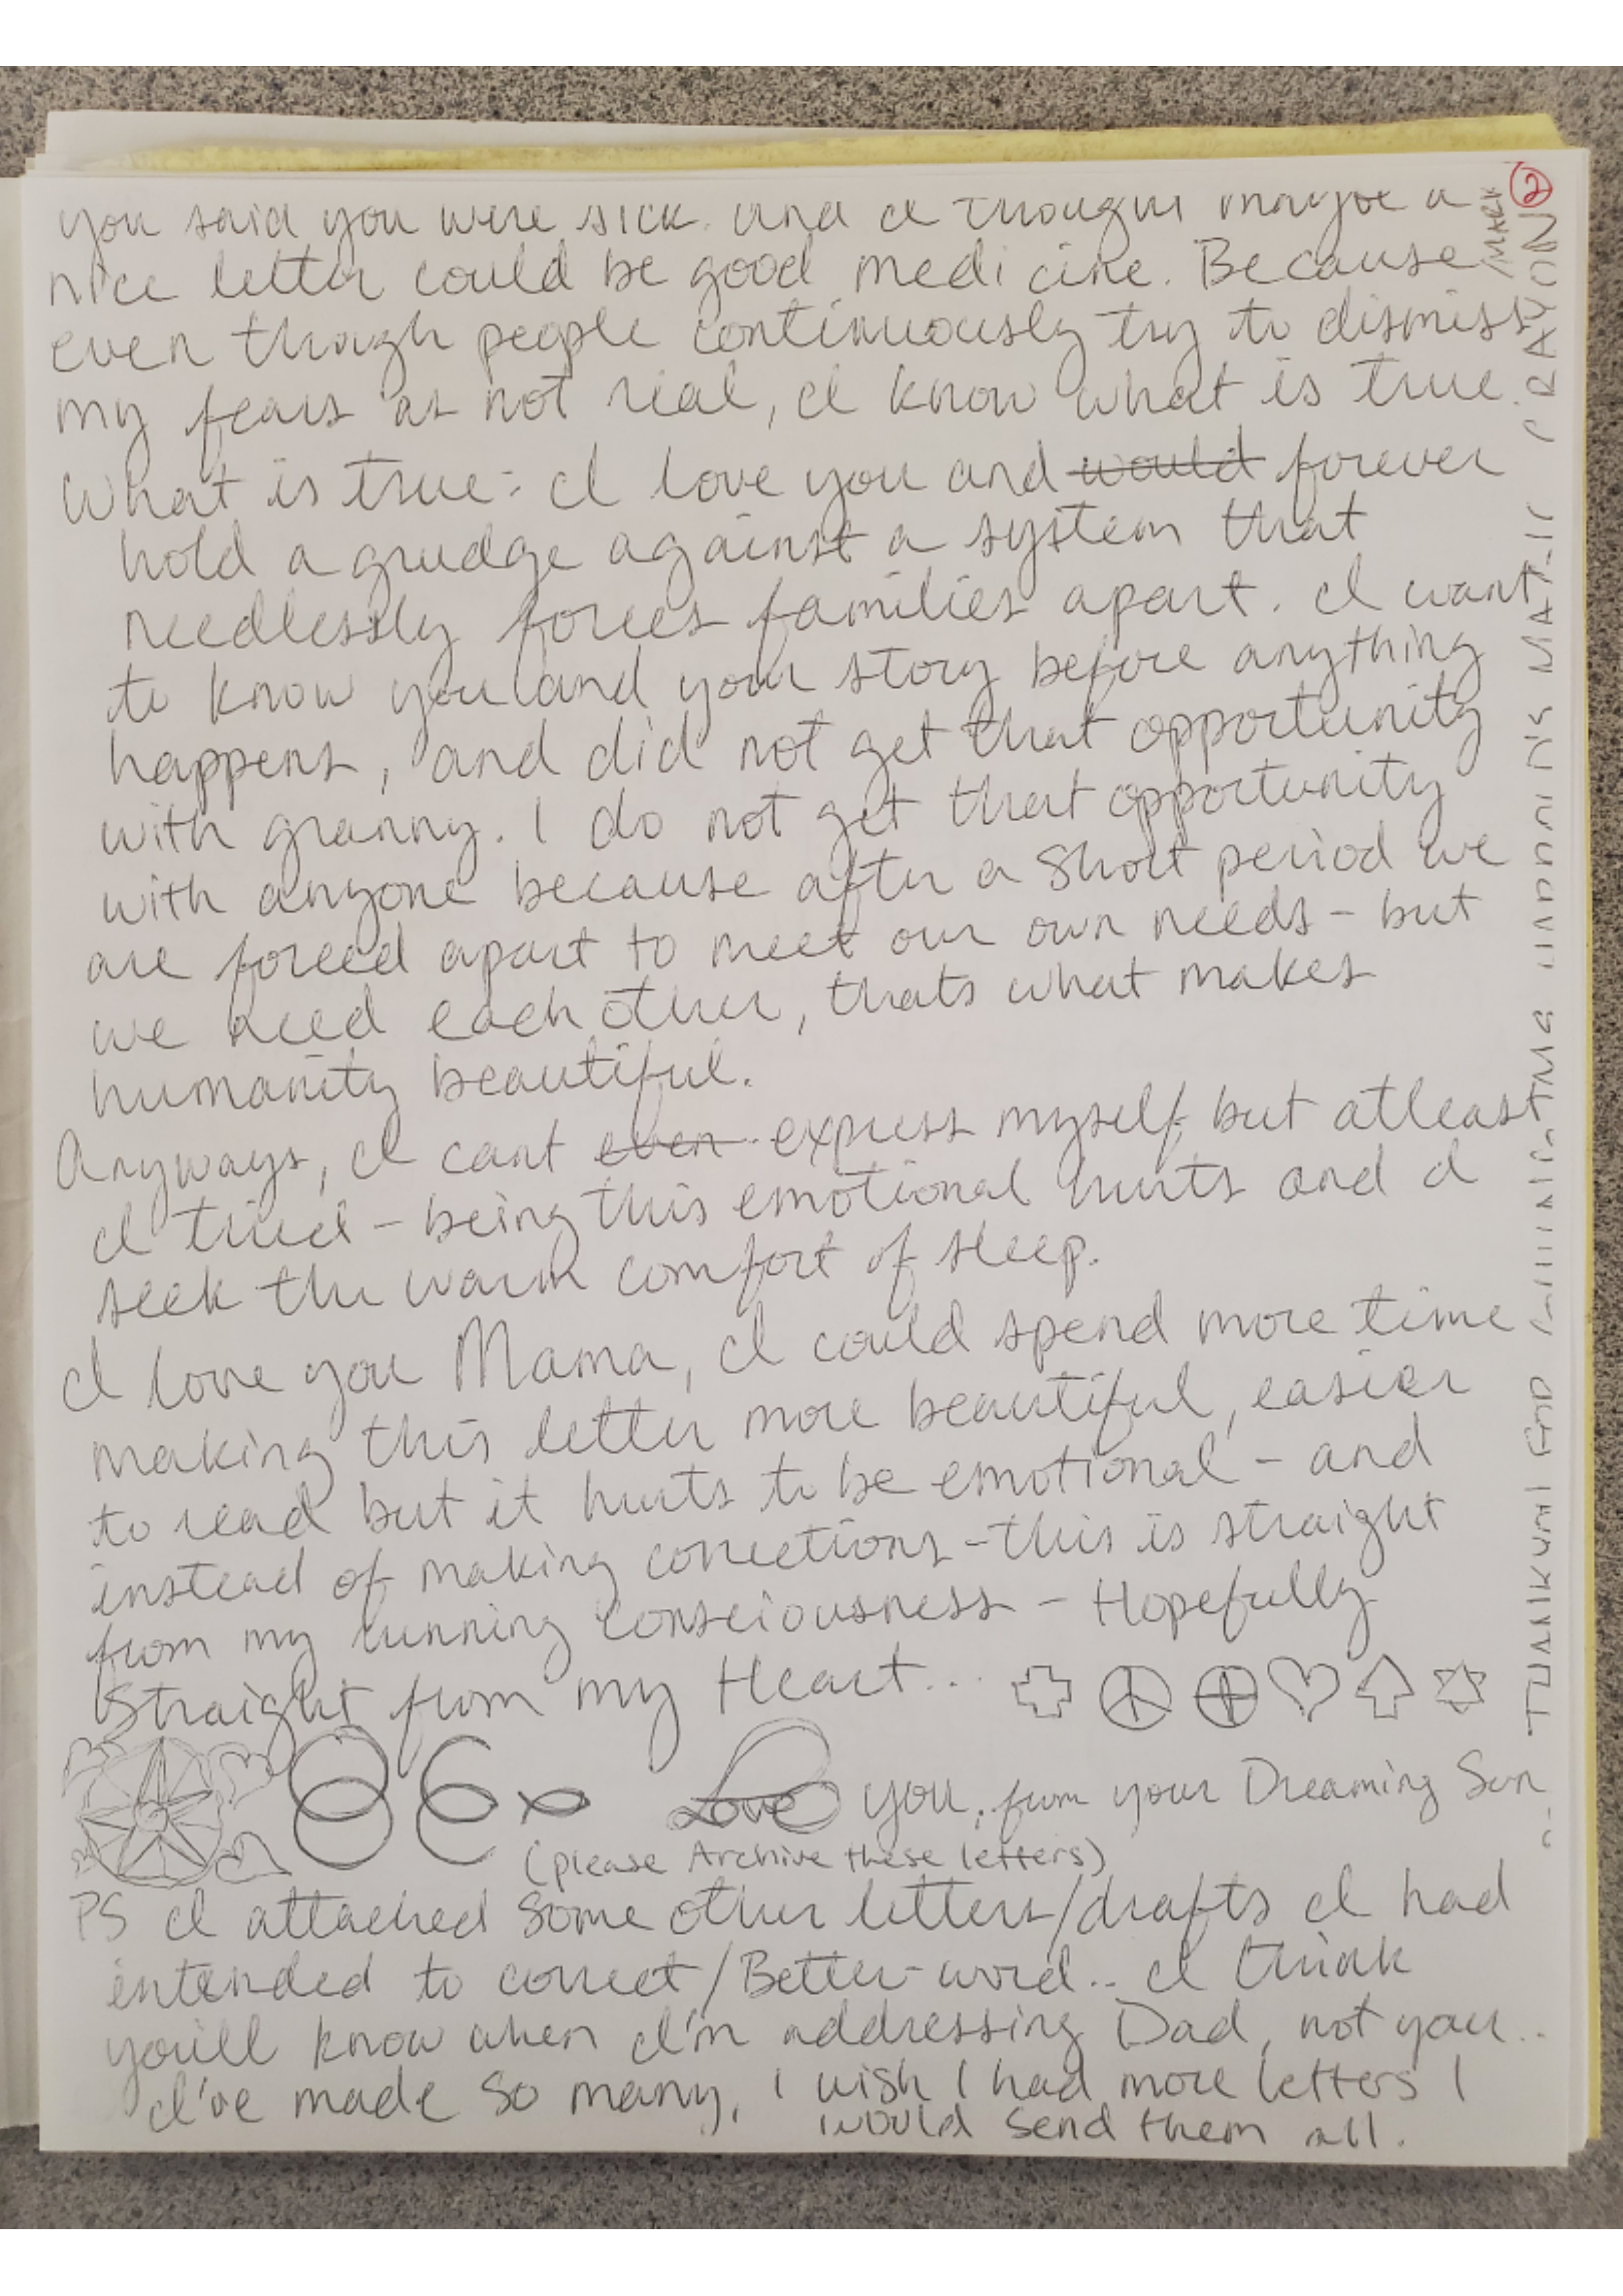 ②
you said you were sick. and I thought maybe a
nice letter could be good medicine. Because
even though people continuously try to dismiss
my fears as not real, I know what is true.
What is true: I love you and would forever
hold a grudge against a system that
needlessly forces families apart. I want
to know you and your story before anything
happens, and did not get that opportunity
with granny. I do not get that opportunity
with anyone because after a short period we
are forced apart to meet our own needs - but
we need each other, thats what makes
humanity beautiful.
Anyways, I cant even express myself but atleast
I tried - being this emotional hurts and I
seek the warm comfort of sleep.
I love you Mama, I could spend more time
making this letter more beautiful, easier
to read but it hurts to be emotional - and
instead of making corrections - this is straight
from my running consciousness - Hopefully
Straight from my Heart...
Love you, from your Dreaming Sun
(please Archive these letters)
PS I attached some other letters/drafts I had
intended to correct/Better-word.. I think
you'll know when I'm addressing Dad, not you..
I've made so many, I wish I had more letters I
would send them all.
MAGIC CRAYON
MARK